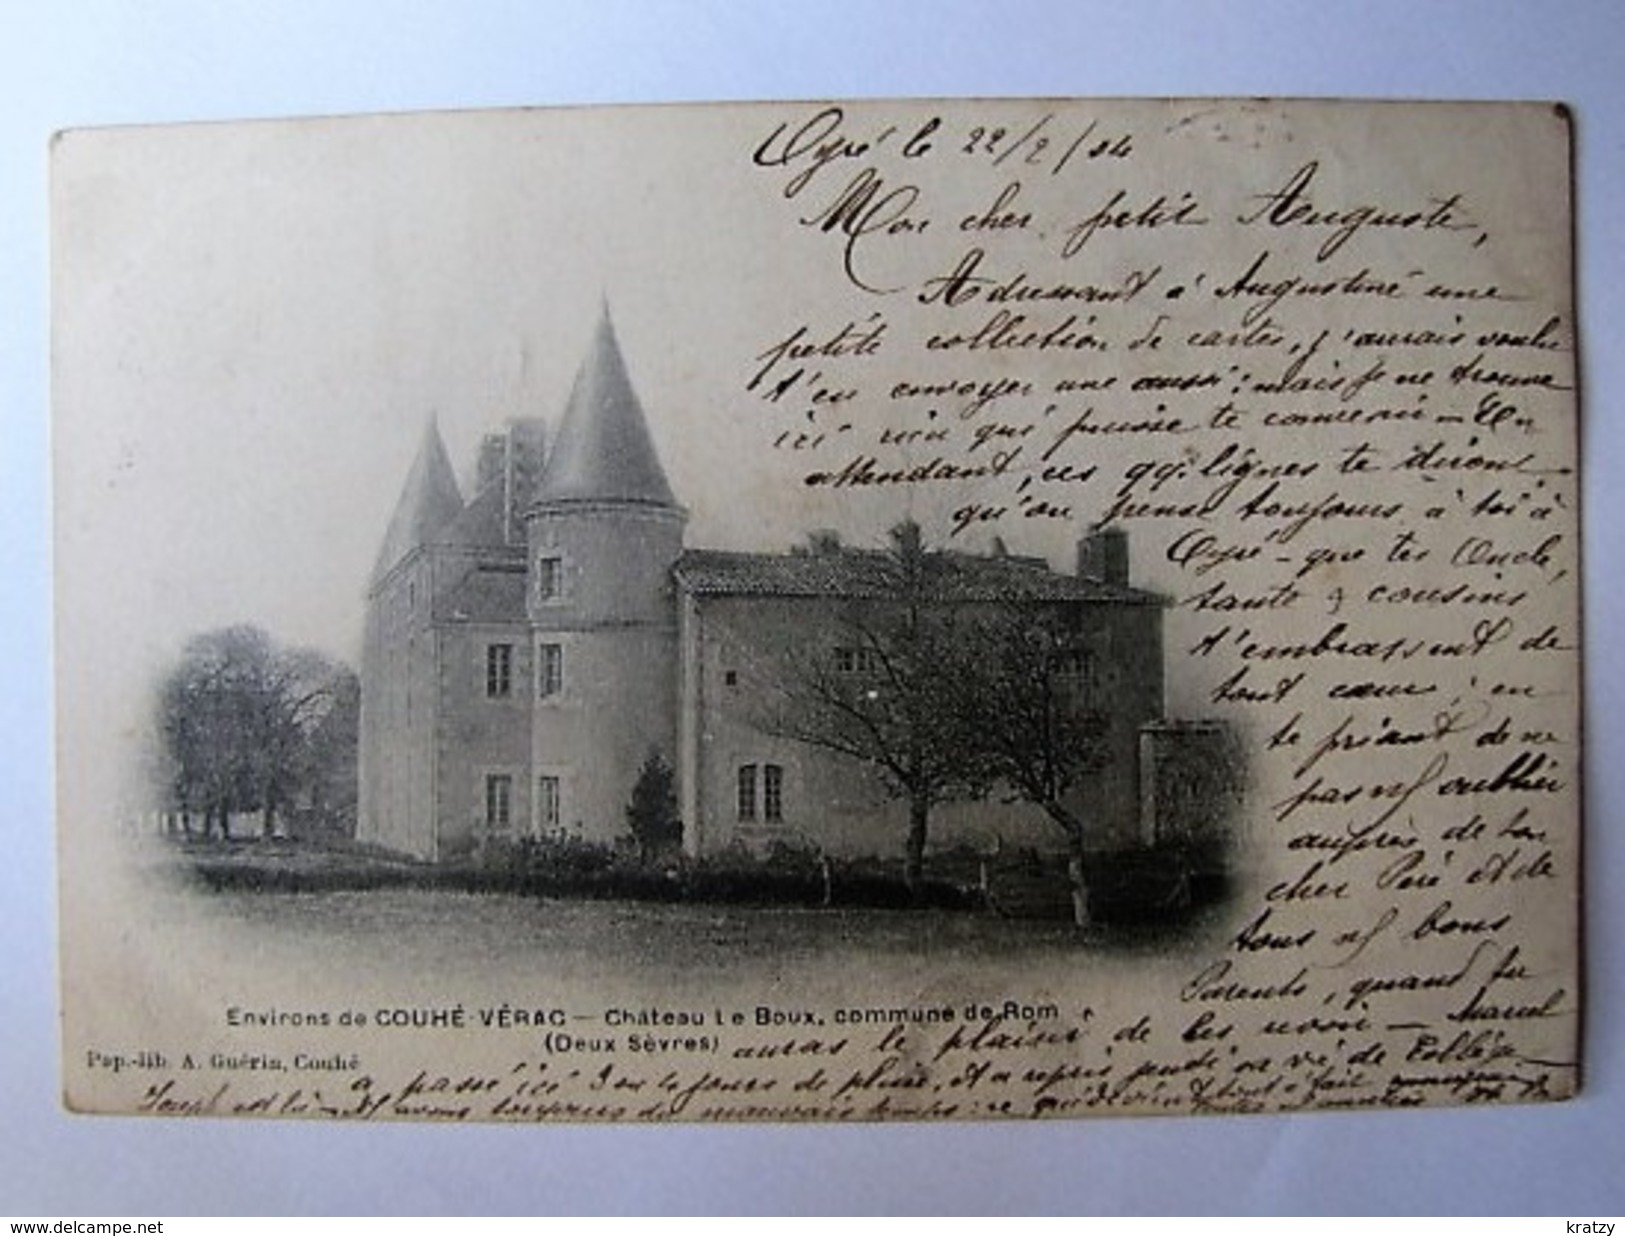 Oyré le 22/2/04
Mon cher petit Auguste,
Adressant à Augustine une
petite collection de cartes, j'aurais voulu
t'en envoyer une aussi : mais je ne trouve
ici rien qui puisse te convenir – En
attendant, ces qq. lignes te diront
qu'on pense toujours à toi à
Oyré – que tes Oncle,
tante & cousins
t'embrassent de
tout cœur ; en
te priant de ne
pas ns oublier
auprès de ton
cher Père et de
tous ns bons
Parents, quand tu
auras le plaisir de les revoir – Marcel
a passé ici 3 ou 4 jours de pluie, et a repris jeudi sa vie de Collège
Joseph est là – Ns avons toujours du mauvais temps : ce qui devient tout à fait
Environs de COUHÉ-VÉRAC — Château Le Boux, commune de Rom
(Deux Sèvres)
Pap.-lib. A. Guérin, Couhé
www.delcampe.net
kratzy